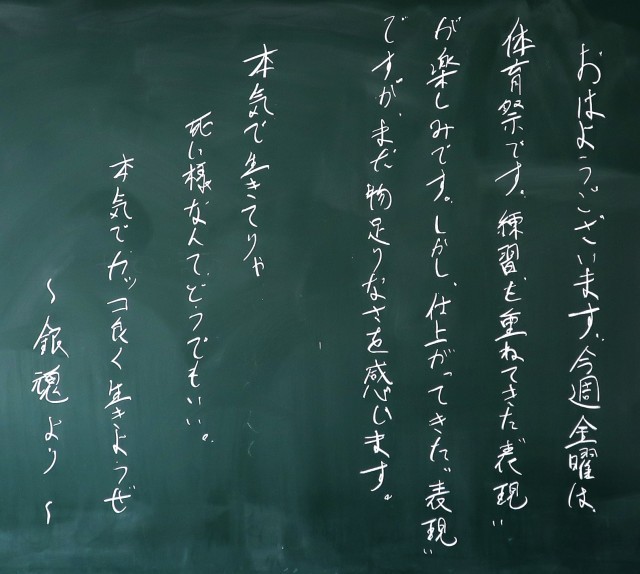 おはようございます。今週金曜は、
体育祭です。練習を重ねてきた"表現"
が楽しみです。しかし、仕上がってきた"表現"
ですが、まだ物足りなさを感じます。
本気で生きてりゃ
死に様なんて、どうでもいい。
本気でカッコ良く生きようぜ
〜銀魂より〜